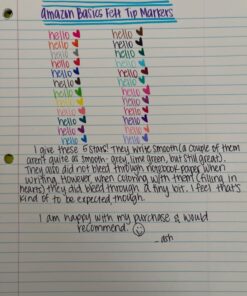 Amazon Basics Felt Tip Markers
hello hello
hello hello
hello hello
hello hello
hello hello
hello hello
hello hello
hello hello
hello hello
hello hello
hello hello
hello hello
I give these 5 stars! They write smooth (a couple of them
aren't quite as smooth - grey, lime green, but still great).
They also did not bleed through notebook paper when
writing. However, when coloring with them (filling in
hearts) they did bleed through a tiny bit. I feel that's
kind of to be expected, though.
I am happy with my purchase & would
recommend.
- ash